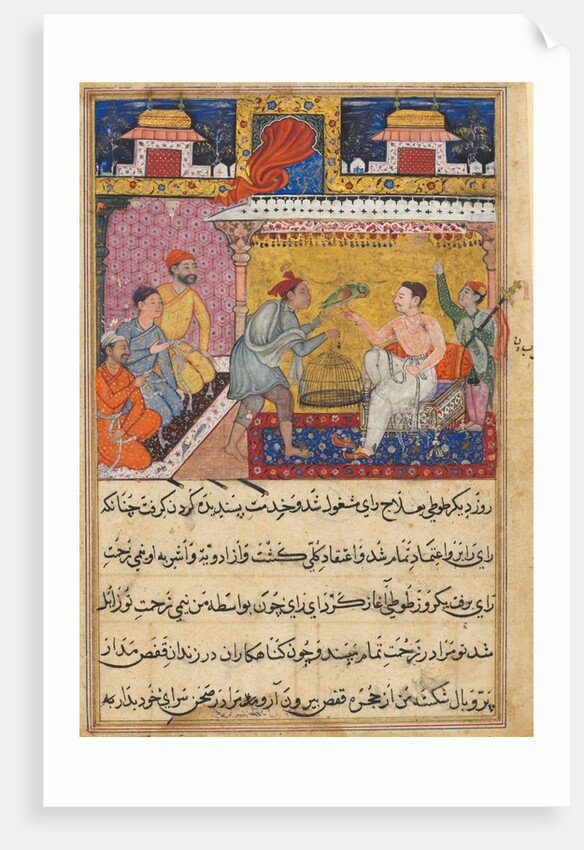 روز دیکر طوطی بعلاج رای مشغول شد و خدمت پسندیده کردن کرفت چنانکه
رای را برو اعتماد تمام شد و اعتقاد کلی کشت و از ادویه و اشربه او نیمی زحمت
رای برفت یکروز طوطی آغاز کرد ای رای چون بواسطه من نیمی زحمت تو زایل
شد تو مرا در زحمت تمام مپسند و چون کناهکاران در زندان قفص مدار
پر و بال شکسته من از حجره قفص بیرون آر و مرا در صحن سرای خود بدار که